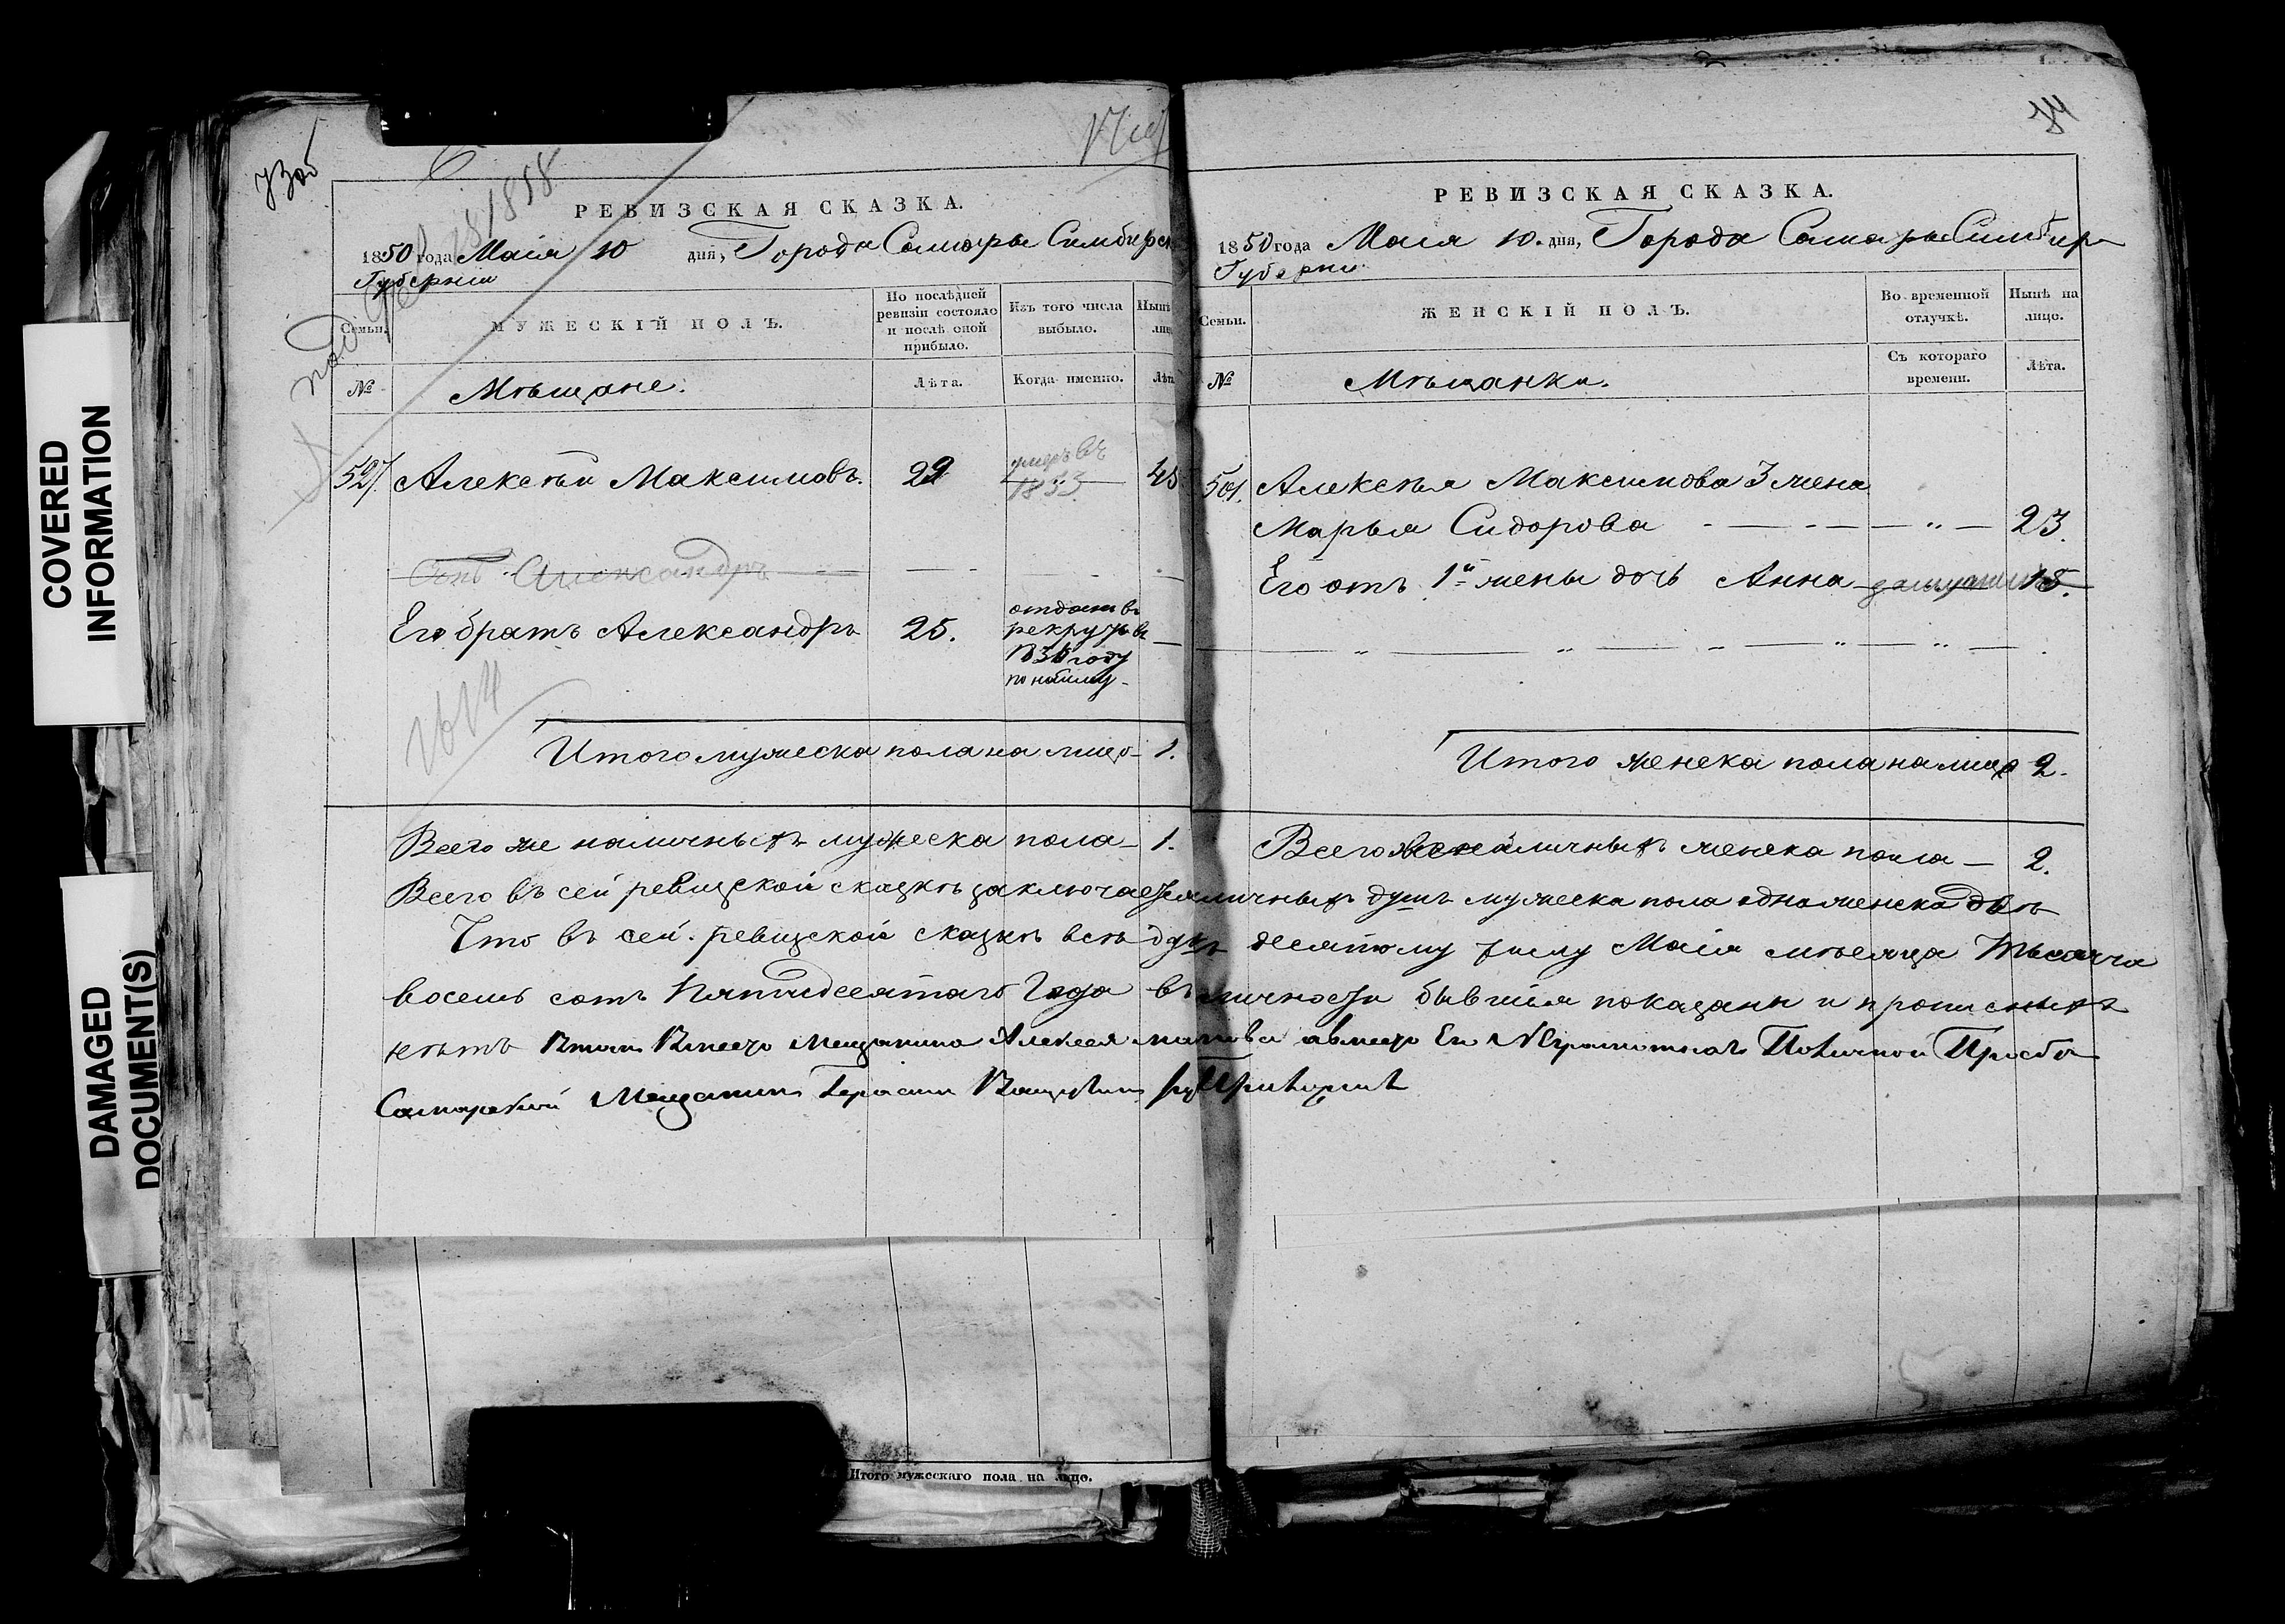 COVERED
INFORMATION
DAMAGED
DOCUMENT(S)
73об
РЕВИЗСКАЯ СКАЗКА.
1850 года Маія 10 дня, Города Самары Симбирск
Губерніи
Семьи.
МУЖЕСКІЙ ПОЛЪ.
По послѣдней ревизіи состояло и послѣ оной прибыло.
Изъ того числа выбыло.
Нынѣ
№
Мѣщане.
Лѣта.
Когда именно.
Лѣт
527. Алексѣй Максимовъ. 29 умеръ въ 45
Сынъ Александръ
Его братъ Александръ 25. отданъ въ
рекруты въ
году
по найму
1614
Итого мужеска пола на лицо 1.
Всего же наличныхъ мужеска пола 1.
74
РЕВИЗСКАЯ СКАЗКА.
1850 года Маія 10. дня, Города Самары Симбир
Губерніи
Семьи.
ЖЕНСКІЙ ПОЛЪ.
Во временной отлучкѣ.
Нынѣ на лицо.
№
Мѣщанки.
Съ котораго времени.
Лѣта.
Алексѣя Максимова 3 жена
Марья Сидорова 23.
Его отъ 1й жены дочь Анна 15.
Итого женска пола на лицо 2.
Всего наличныхъ женска пола 2.
Всего въ сей ревизской сказкѣ заключается наличныхъ душъ мужеска пола одна женска двѣ
Что въ сей ревизской сказкѣ всѣ душъ десятому числу Маія мѣсяца Тысяча
восемь сотъ Пятидесятаго Года въ личности бывшія показаны и прописныхъ
нѣтъ Вмесо Мещанина Алексея Неграмотнаго По Личной Прозбе
Самарской Мещанинъ Герасим руку Приложилъ
Итого мужескаго пола на лицо.